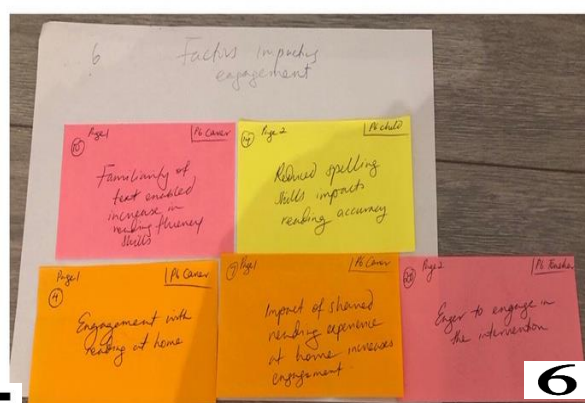 6 Factors impacting
engagement
Page 1
P6 Carer
Familiarity of
text enabled
increase in
reading fluency
skills
Page 2
P6 child
Reduced spelling
skills impacts
reading accuracy
Page 1
P6 Carer
4
Engagement with
reading at home
Page 1
P6 Carer
Impact of shared
reading experience
at home increases
engagement
Page 2
P6 Teacher
Eager to engage in
the intervention
6